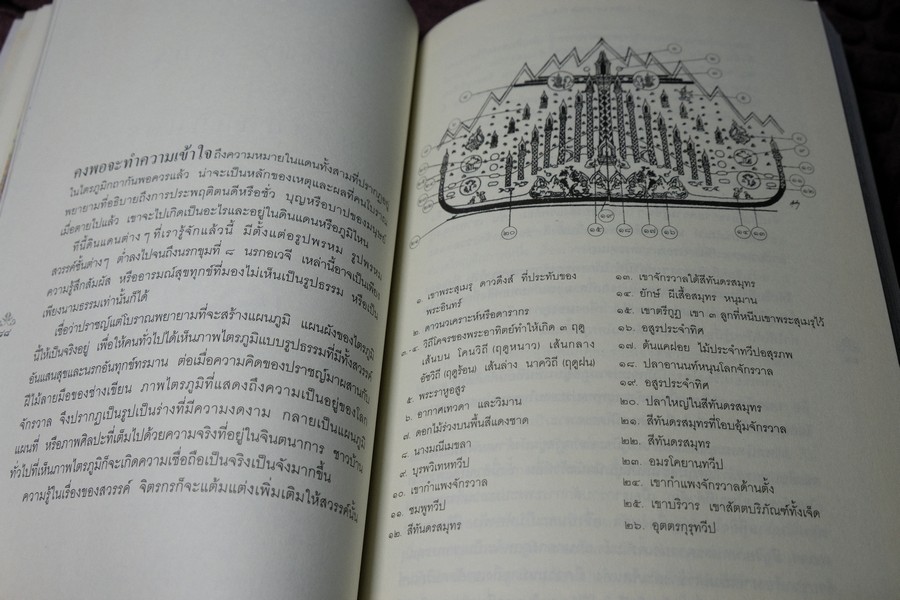 คงพอจะทำความเข้าใจถึงความหมายในแดนทั้งสามที่ปรากฏอยู่
ในไตรภูมิกถากันพอควรแล้ว น่าจะเป็นหลักของเหตุและผลที่คนโบราณ
พยายามที่อธิบายถึงการประพฤติตนดีหรือชั่ว บุญหรือบาปของมนุษย์
เมื่อตายไปแล้ว เขาจะไปเกิดเป็นอะไรและอยู่ในดินแดนหรือภูมิไหน
ทีนี้ดินแดนต่าง ๆ ที่เรารู้จักแล้วนี้ มีตั้งแต่อรูปพรหม รูปพรหม
สวรรค์ชั้นต่าง ๆ ต่ำลงไปจนถึงนรกขุมที่ ๘ นรกอเวจี เหล่านี้อาจเป็นเพียง
ความรู้สึกสัมผัส หรืออารมณ์สุขทุกข์ที่มองไม่เห็นเป็นรูปธรรม หรือเป็น
เพียงนามธรรมเท่านั้นก็ได้
เชื่อว่าปราชญ์แต่โบราณพยายามที่จะสร้างแผนภูมิ แผนผังของไตรภูมิ
นี้ให้เป็นจริงอยู่ เพื่อให้คนทั่วไปได้เห็นภาพไตรภูมิแบบรูปธรรมที่มีทั้งสวรรค์
อันแสนสุขและนรกอันทุกข์ทรมาน ต่อเมื่อความคิดของปราชญ์มาผสานกับ
ฝีไม้ลายมือของช่างเขียน ภาพไตรภูมิที่แสดงถึงความเป็นอยู่ของโลก
จักรวาล จึงปรากฏเป็นรูปเป็นร่างที่มีความงดงาม กลายเป็นแผนภูมิ
แผนที่ หรือภาพศิลปะที่เต็มไปด้วยความจริงที่อยู่ในจินตนาการ ชาวบ้าน
ทั่วไปที่เห็นภาพไตรภูมิก็จะเกิดความเชื่อถือเป็นจริงเป็นจังมากขึ้น
ความรู้ในเรื่องของสวรรค์ จิตรกรก็จะแต้มแต่งเพิ่มเติมให้สวรรค์นั้น
๒๐ ๑๕ ๑๘ ๑๗ ๑๖
๑. เขาพระสุเมรุ ดาวดึงส์ ที่ประทับของ
พระอินทร์
๒. ดาวนวเคราะห์หรือดารากร
๓.-๔. วิถีโคจรของพระอาทิตย์ทำให้เกิด ๓ ฤดู
เส้นบน โคนวิถี (ฤดูหนาว) เส้นกลาง
อัชวิถี (ฤดูร้อน) เส้นล่าง นาควิถี (ฤดูฝน)
๕. พระราหูอสูร
๖. อากาศเทวดา และวิมาน
๗. ดอกไม้ร่วงบนพื้นสีแดงชาด
๘. นางมณีเมขลา
๙. บุรพวิเทหทวีป
๑๐. เขากำแพงจักรวาล
๑๑. ชมพูทวีป
๑๒. สีทันดรสมุทร
๑๓. เขาจักรวาลใต้สีทันดรสมุทร
๑๔. ยักษ์ ผีเสื้อสมุทร หนุมาน
๑๕. เขาตรีกูฏ เขา ๓ ลูกที่หนีบเขาพระสุเมรุไว้
๑๖. อสูรประจำทิศ
๑๗. ต้นแคฝอย ไม้ประจำทวีปอสูรภพ
๑๘. ปลาอานนท์หนุนโลกจักรวาล
๑๙. อสูรประจำทิศ
๒๐. ปลาใหญ่ในสีทันดรสมุทร
๒๑. สีทันดรสมุทรที่โอบอุ้มจักรวาล
๒๒. สีทันดรสมุทร
๒๓. อมรโคยานทวีป
๒๔. เขากำแพงจักรวาลด้านตั้ง
๒๕. เขาบริวาร เขาสัตตบริภัณฑ์ทั้งเจ็ด
๒๖. อุตตรกุรุทวีป